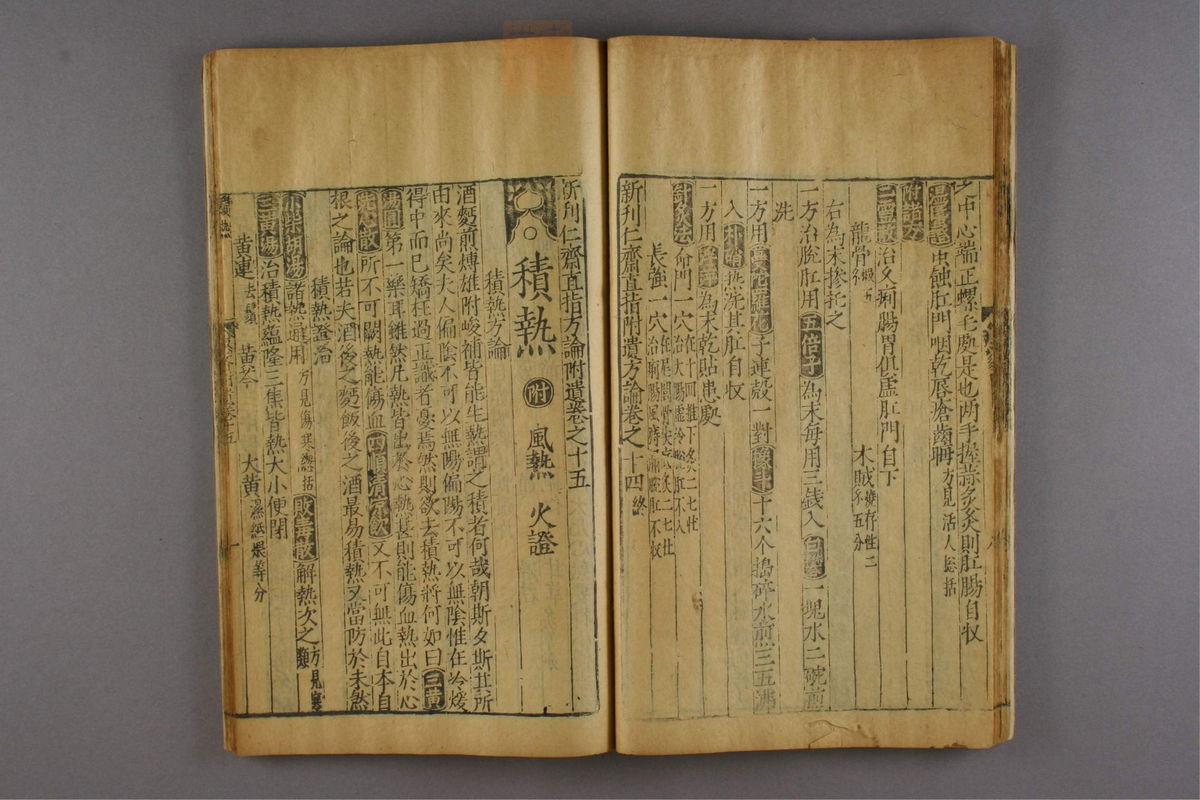 之中心端正螺毛處是也两手握蒜多炙則肛腸自收
虫蝕肛門咽乾唇瘡齒䘌方見活人總括
附諸方
治久痢腸胃俱虛肛門自下
龍骨 木賊燒存性二ネ五分
右為末摻托之
一方治脫肛用五倍子為末每用三錢入白礬一塊水二碗煎
洗
一方用曼陀羅花子連殼一對橡斗十六个搗碎水煎三五沸
入朴硝熱洗其肛自收
一方用為末乾貼患處
針灸法命門一穴在十四椎下灸二七壯
長強一穴
新刊仁齋直指附遺方論卷之十四終
新刊仁齋直指方論附遺卷之十五
積熱 附 風熱 火證
積熱方論
酒麪煎煿雄附峻補皆能生熱謂之積者何哉朝斯夕斯其所
由來尚矣夫人偏陰不可以無陽偏陽不可以無陰惟在冷煖
得中而已矯枉過正識者憂焉然則欲去積熱將何如曰三黃
湯圓第一藥耳雖然凡熱皆出於心熱甚則能傷血熱出於心
散所不可闕熱能傷血四順清凉飲又不可無此自本自
根之論也若夫酒後之麪飯後之酒最易積熱又當防於未然
積熱證治
小柴胡湯諸熱通用方見傷寒總括 敗毒散解熱次之方見寒類
三黃湯治積熱蘊隆三焦皆熱大小便閉
黃連去鬚 黃芩 大黃濕紙煨等分